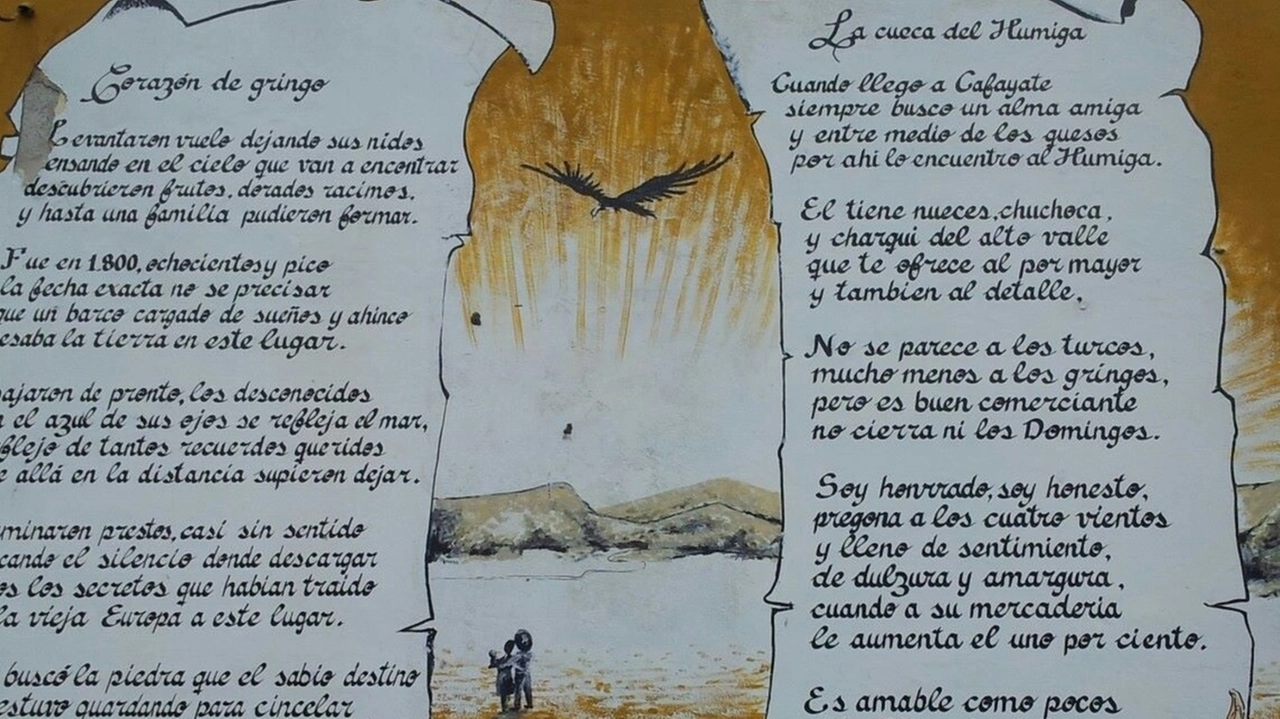 Corazón de gringo
Levantaron vuelo dejando sus nidos
ensando en el cielo que van a encontrar
descubrieron frutos, dorados racimos,
y hasta una familia pudieron formar.
Fue en 1.800, ochocientos y pico
la fecha exacta no se precisar
que un barco cargado de sueños y ahinco
esaba la tierra en este lugar.
ajaron de pronto, los desconocidos
n el azul de sus ojos se refleja el mar,
flejo de tantos recuerdos queridos
e allá en la distancia supieron dejar.
minaron prestos, casi sin sentido
cando el silencio donde descargar
os los secretos que habian traido
la vieja Europa a este lugar.
buscó la piedra que el sabio destino
estuvo guardando para cincelar
La cueca del Humiga
Cuando llego a Cafayate
siempre busco un alma amiga
y entre medio de los quesos
por ahi lo encuentro al Humiga.
El tiene nueces, chuchoca,
y charqui del alto valle
que te ofrece al por mayor
y tambien al detalle.
No se parece a los turcos,
mucho menos a los gringos,
pero es buen comerciante
no cierra ni los Domingos.
Soy honrrado, soy honesto,
pregona a los cuatro vientos
y lleno de sentimiento,
de dulzura y amargura,
cuando a su mercaderia
le aumenta el uno por ciento.
Es amable como pocos